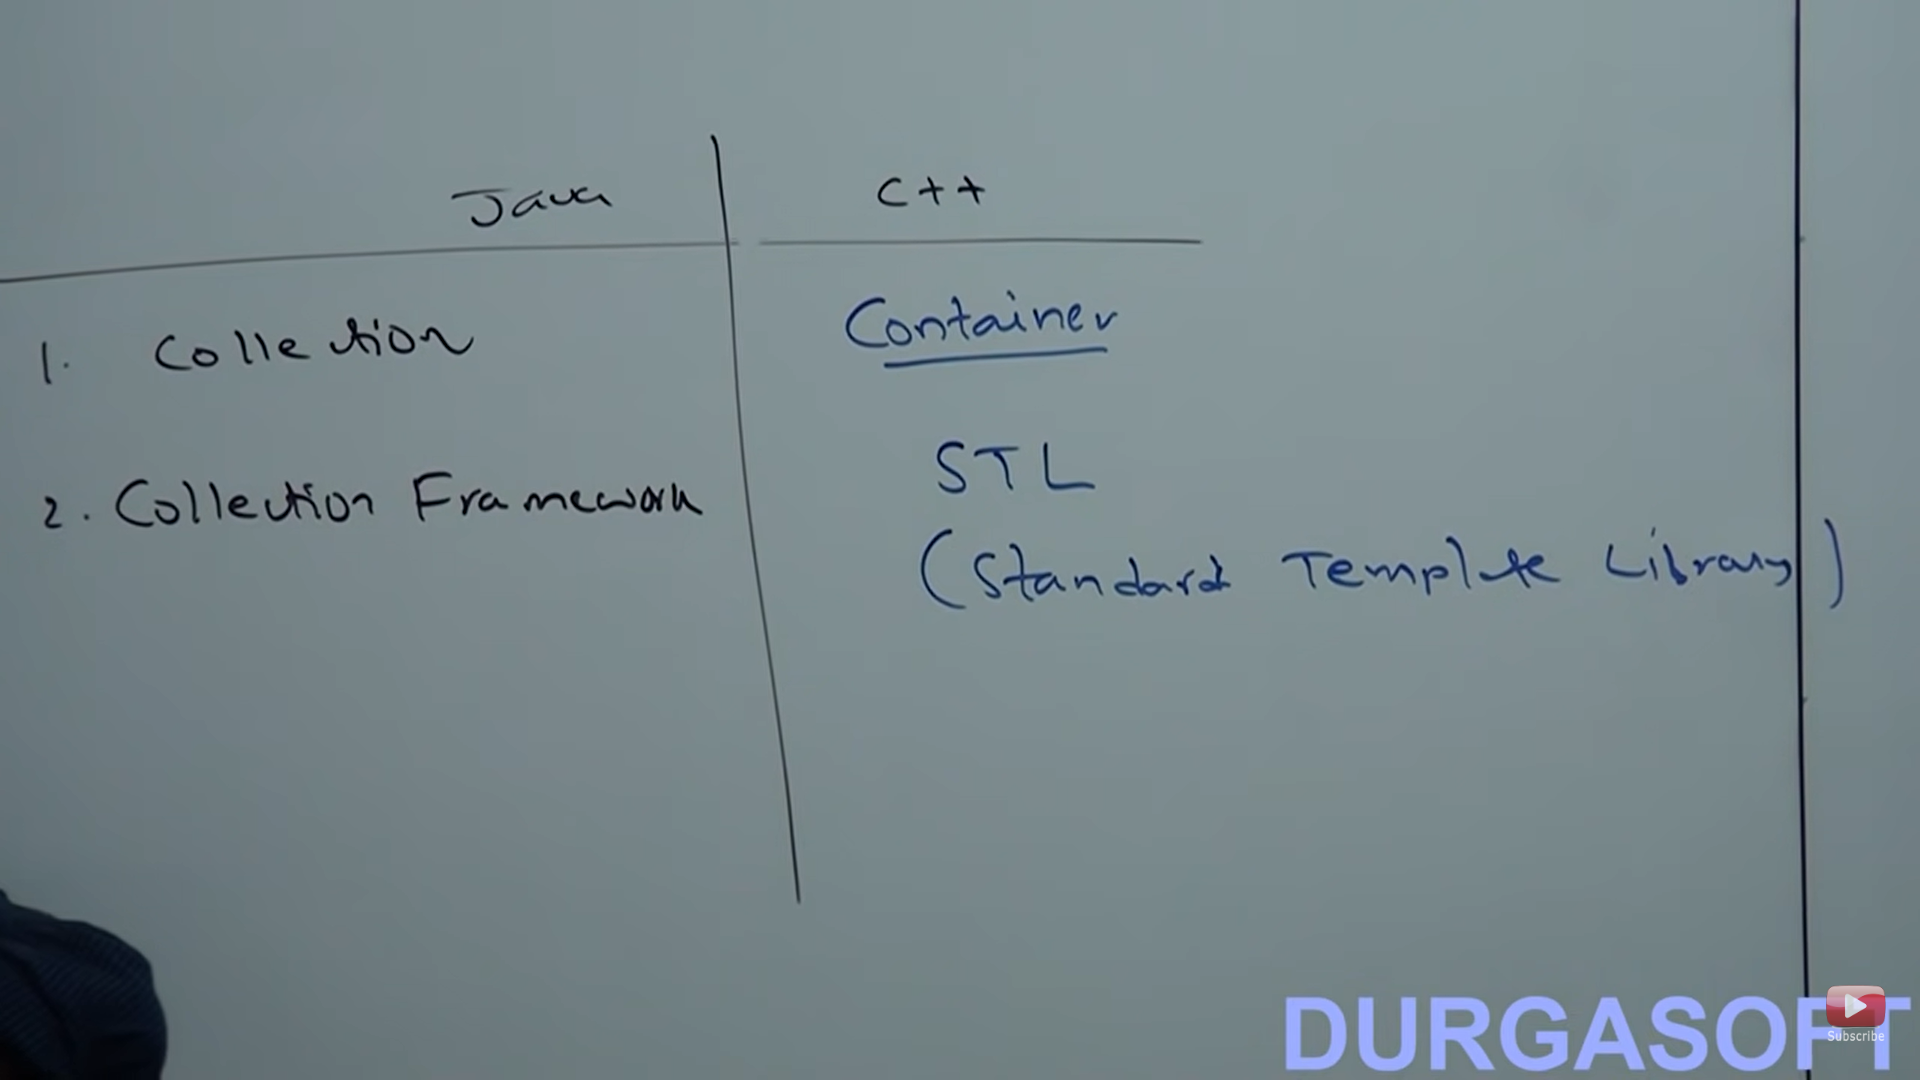 Java C++
1. Collection Container
2. Collection Framework STL
(Standard Template Library)
DURGASOFT
Subscribe